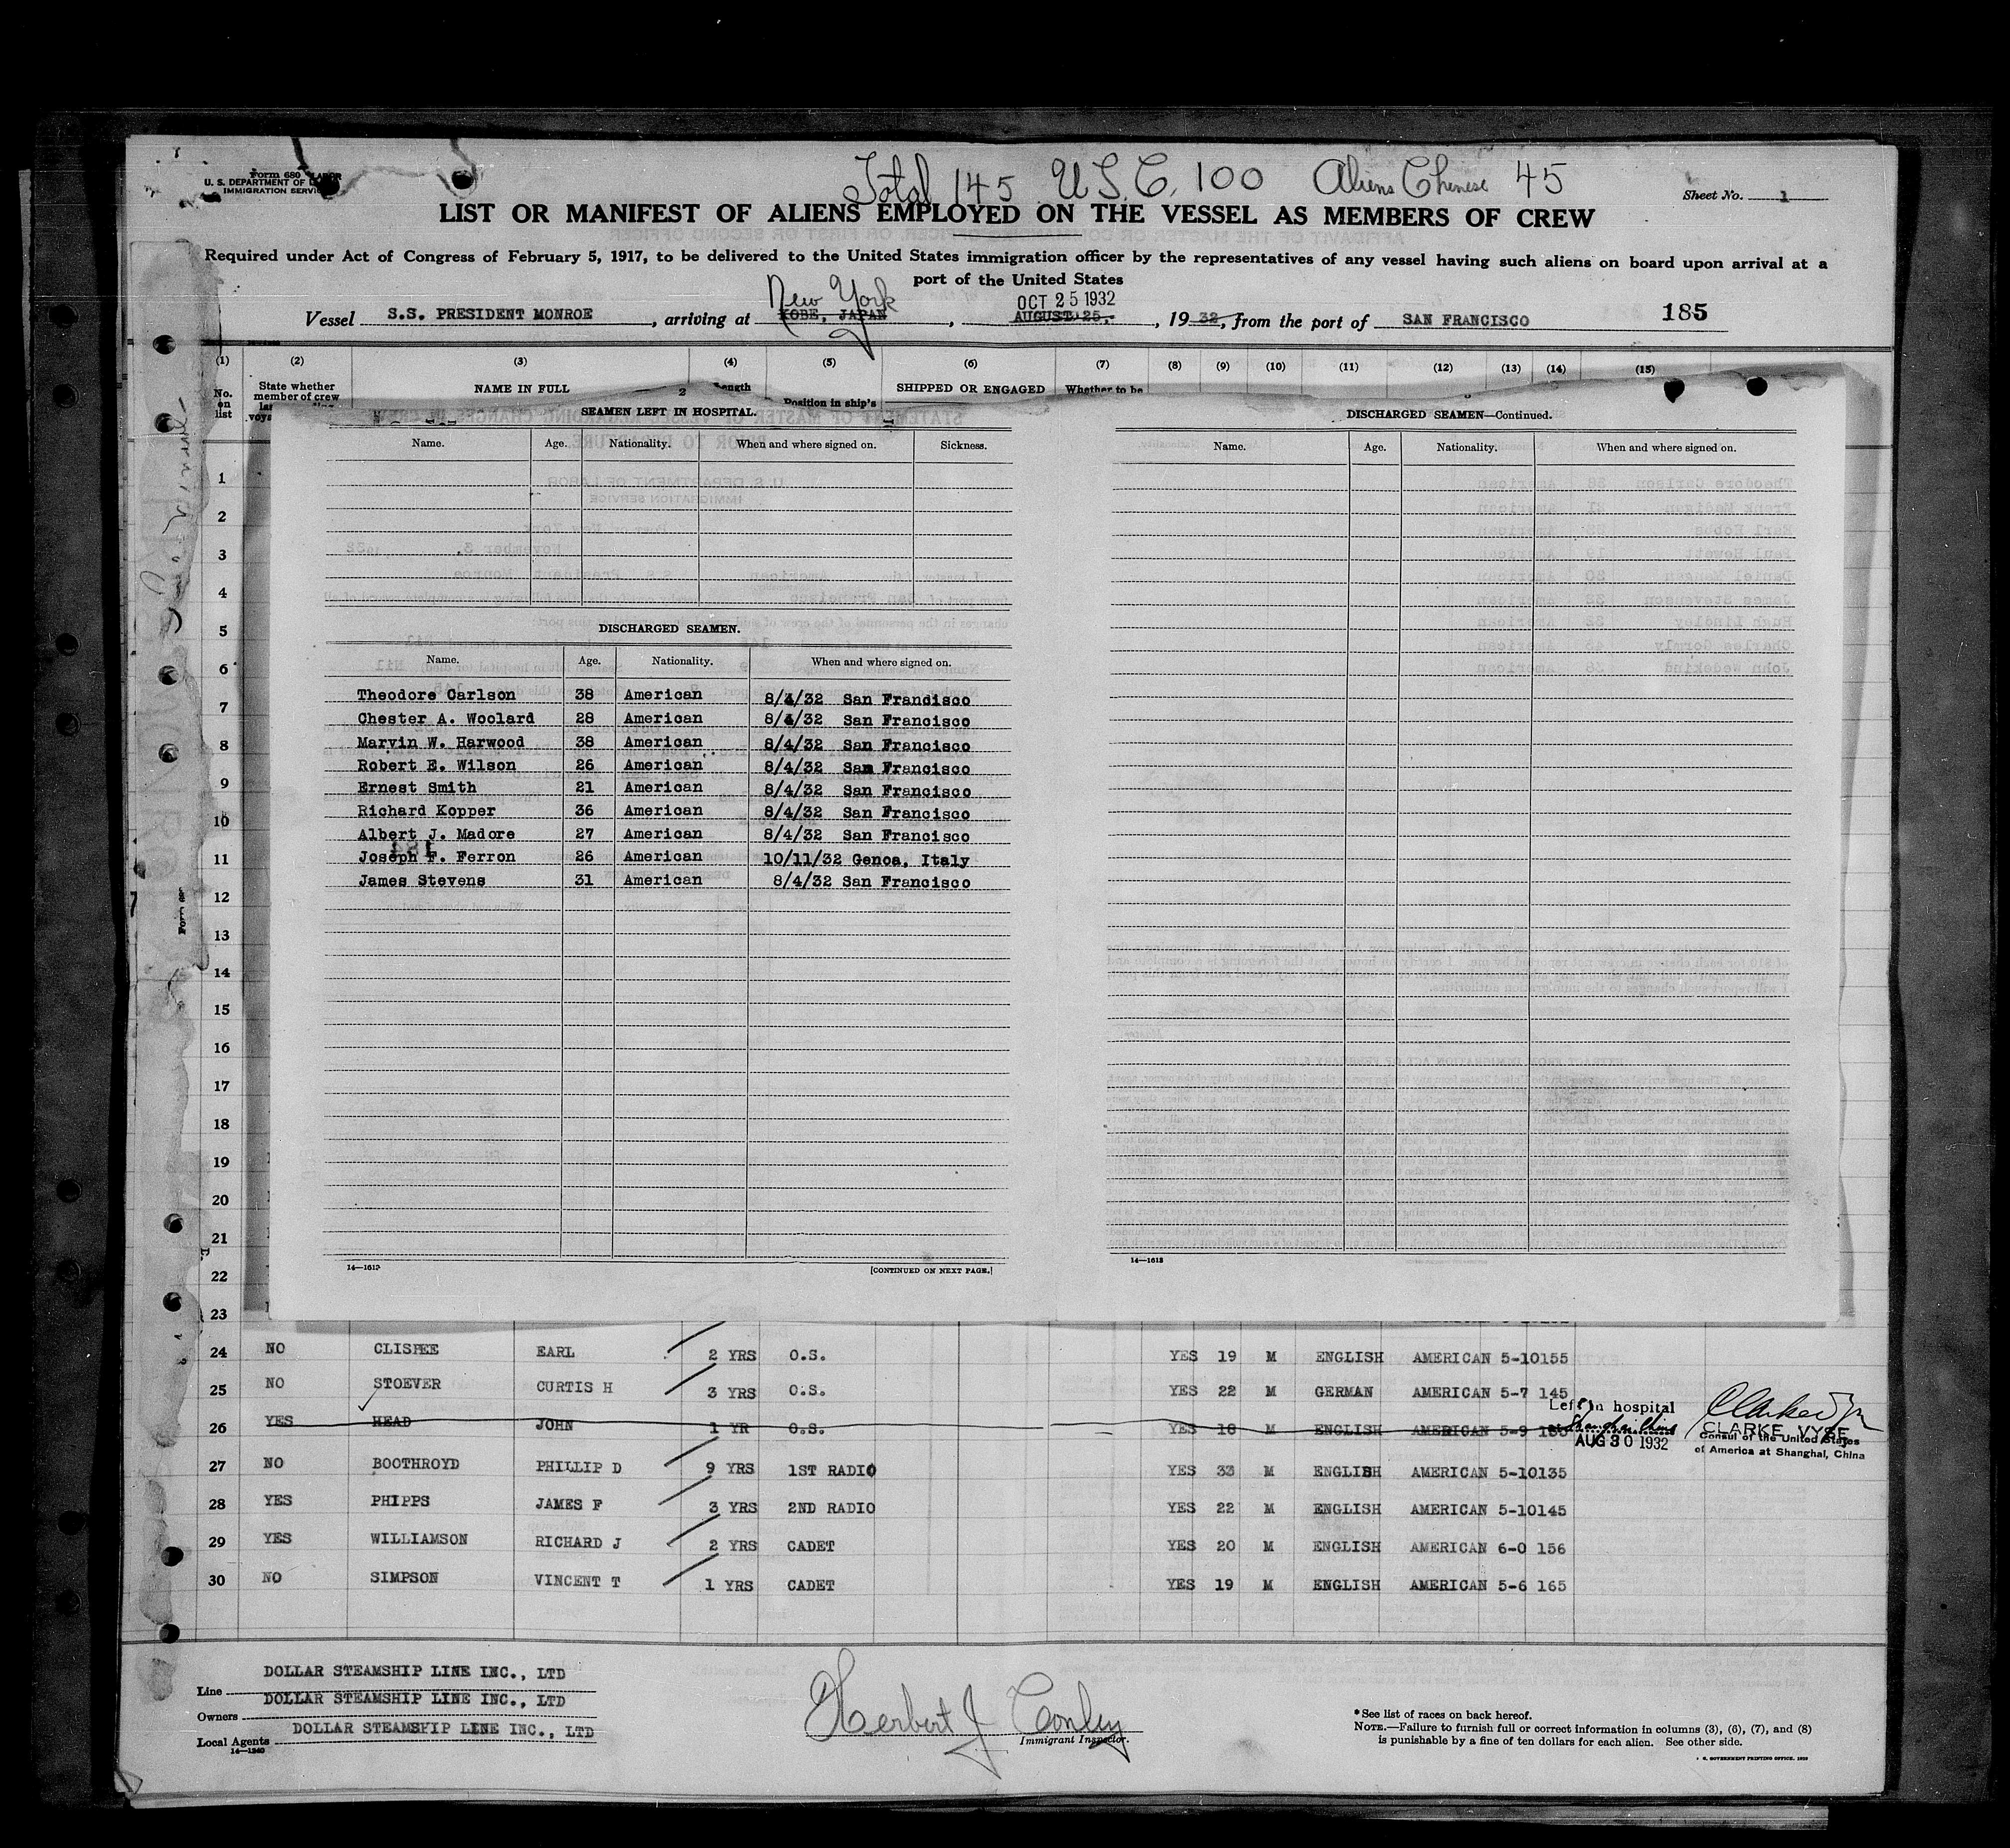 Total 145 U.S.C. 100 Aliens Chinese 45
Form 680
U. S. DEPARTMENT OF LABOR
IMMIGRATION SERVICE
Sheet No. 1
LIST OR MANIFEST OF ALIENS EMPLOYED ON THE VESSEL AS MEMBERS OF CREW
Required under Act of Congress of February 5, 1917, to be delivered to the United States immigration officer by the representatives of any vessel having such aliens on board upon arrival at a
port of the United States
New York OCT 25 1932
Vessel S.S. PRESIDENT MONROE, arriving at KOBE, JAPAN, AUGUST 25, 1932, from the port of SAN FRANCISCO 185
(1) (2) (3) (4) (5) (6) (7) (8) (9) (10) (11) (12) (13) (14) (15)
No. on list State whether member of crew NAME IN FULL Length Position in ship's SHIPPED OR ENGAGED Whether to be
2
SEAMEN LEFT IN HOSPITAL.
Name. Age. Nationality. When and where signed on. Sickness.
DISCHARGED SEAMEN.
Name. Age. Nationality. When and where signed on.
Theodore Carlson 38 American 8/4/32 San Francisco
Chester A. Woolard 28 American 8/4/32 San Francisco
Marvin W. Harwood 38 American 8/4/32 San Francisco
Robert E. Wilson 26 American 8/4/32 San Francisco
Ernest Smith 21 American 8/4/32 San Francisco
Richard Kopper 36 American 8/4/32 San Francisco
Albert J. Madore 27 American 8/4/32 San Francisco
Joseph F. Ferron 26 American 10/11/32 Genoa, Italy
James Stevens 31 American 8/4/32 San Francisco
14—1613
[CONTINUED ON NEXT PAGE.]
DISCHARGED SEAMEN—Continued.
Name. Age. Nationality. When and where signed on.
14—1613
1
2
3
4
5
6
7
8
9
10
11
12
13
14
15
16
17
18
19
20
21
22
23
24 NO CLISPEE EARL 2 YRS O.S. YES 19 M ENGLISH AMERICAN 5-10 155
25 NO STOEVER CURTIS H 3 YRS O.S. YES 22 M GERMAN AMERICAN 5-7 145
26 YES HEAD JOHN 1 YR O.S. YES 18 M ENGLISH AMERICAN 5-9
Left in hospital
Shanghai China
AUG 30 1932
CLARKE VYSE
Consul of the United States
of America at Shanghai, China
27 NO BOOTHROYD PHILLIP D 9 YRS 1ST RADIO YES 33 M ENGLISH AMERICAN 5-10 135
28 YES PHIPPS JAMES F 3 YRS 2ND RADIO YES 22 M ENGLISH AMERICAN 5-10 145
29 YES WILLIAMSON RICHARD J 2 YRS CADET YES 20 M ENGLISH AMERICAN 6-0 156
30 NO SIMPSON VINCENT T 1 YRS CADET YES 19 M ENGLISH AMERICAN 5-6 165
Line DOLLAR STEAMSHIP LINE INC., LTD
Owners DOLLAR STEAMSHIP LINE INC., LTD
Local Agents DOLLAR STEAMSHIP LINE INC., LTD
14—1240
Herbert J Conley
Immigrant Inspector.
*See list of races on back hereof.
NOTE.—Failure to furnish full or correct information in columns (3), (6), (7), and (8)
is punishable by a fine of ten dollars for each alien. See other side.